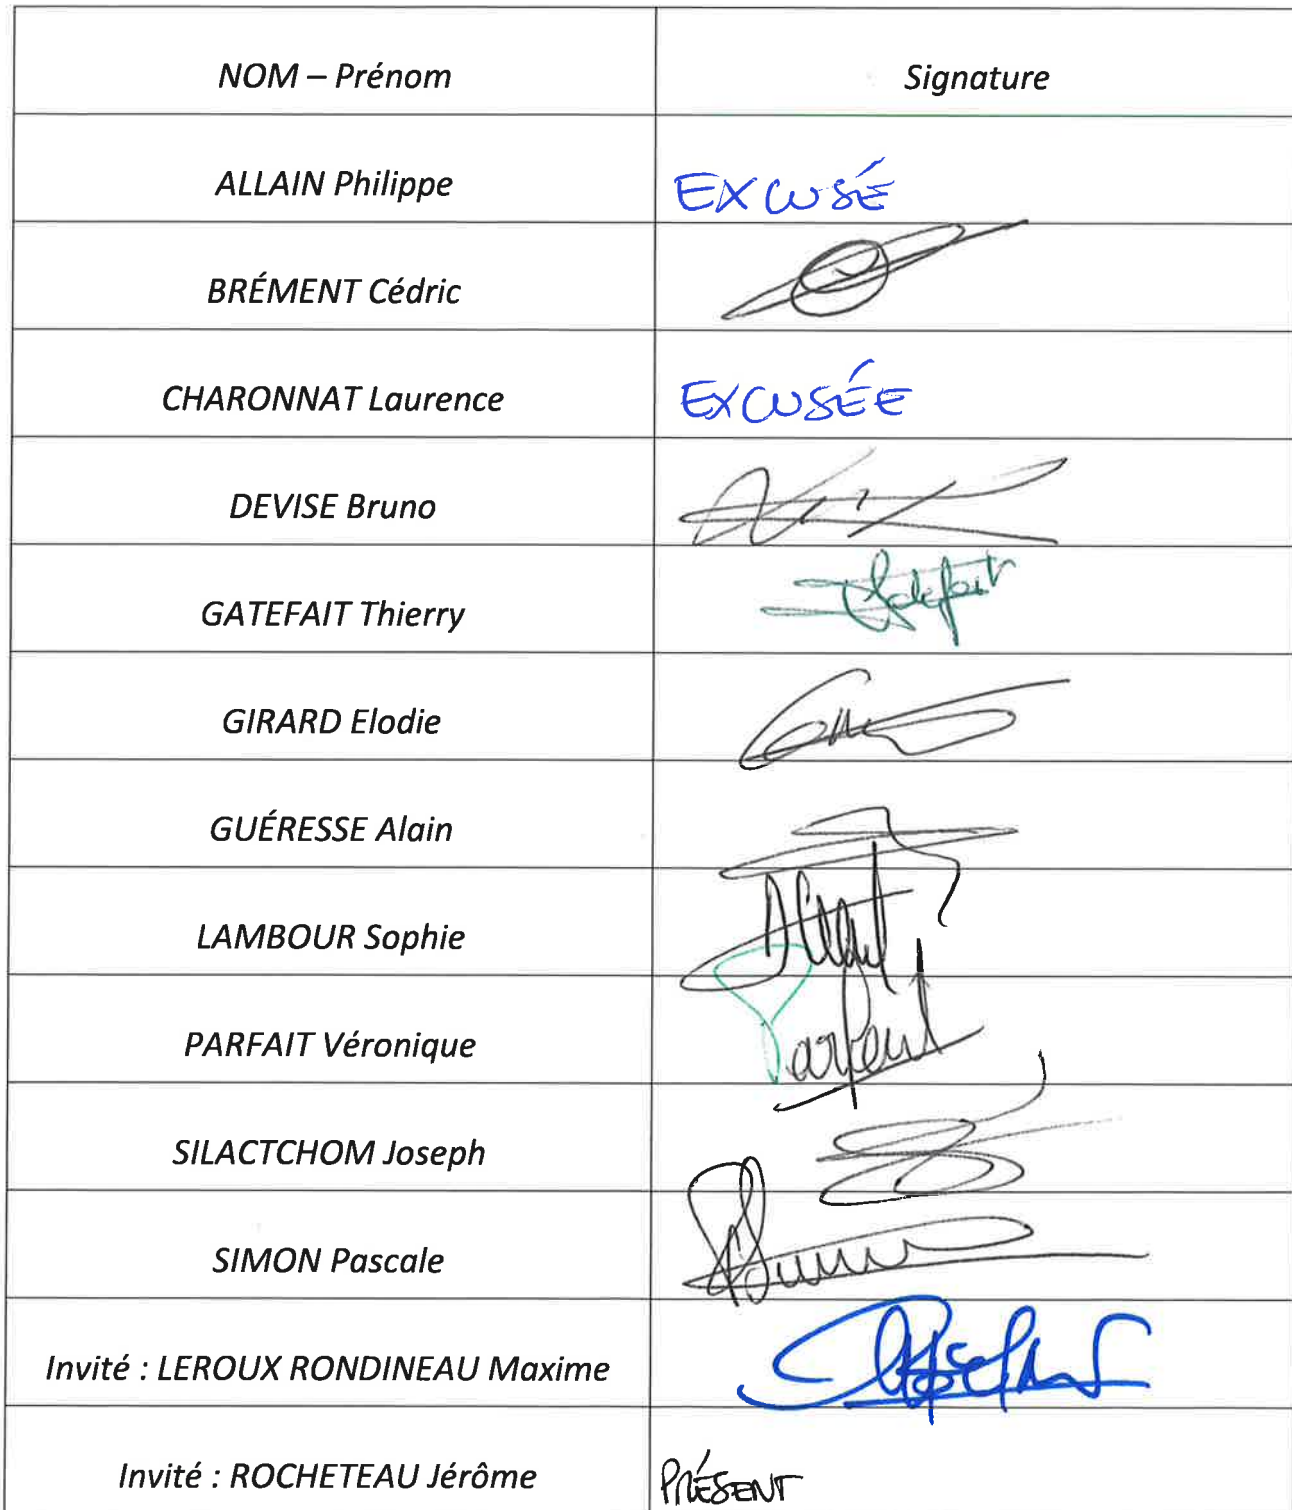 NOM – Prénom Signature
ALLAIN Philippe EXCUSÉ
BRÉMENT Cédric
CHARONNAT Laurence EXCUSÉE
DEVISE Bruno
GATEFAIT Thierry
GIRARD Elodie
GUÉRESSE Alain
LAMBOUR Sophie
PARFAIT Véronique
SILACTCHOM Joseph
SIMON Pascale
Invité : LEROUX RONDINEAU Maxime
Invité : ROCHETEAU Jérôme PRÉSENT